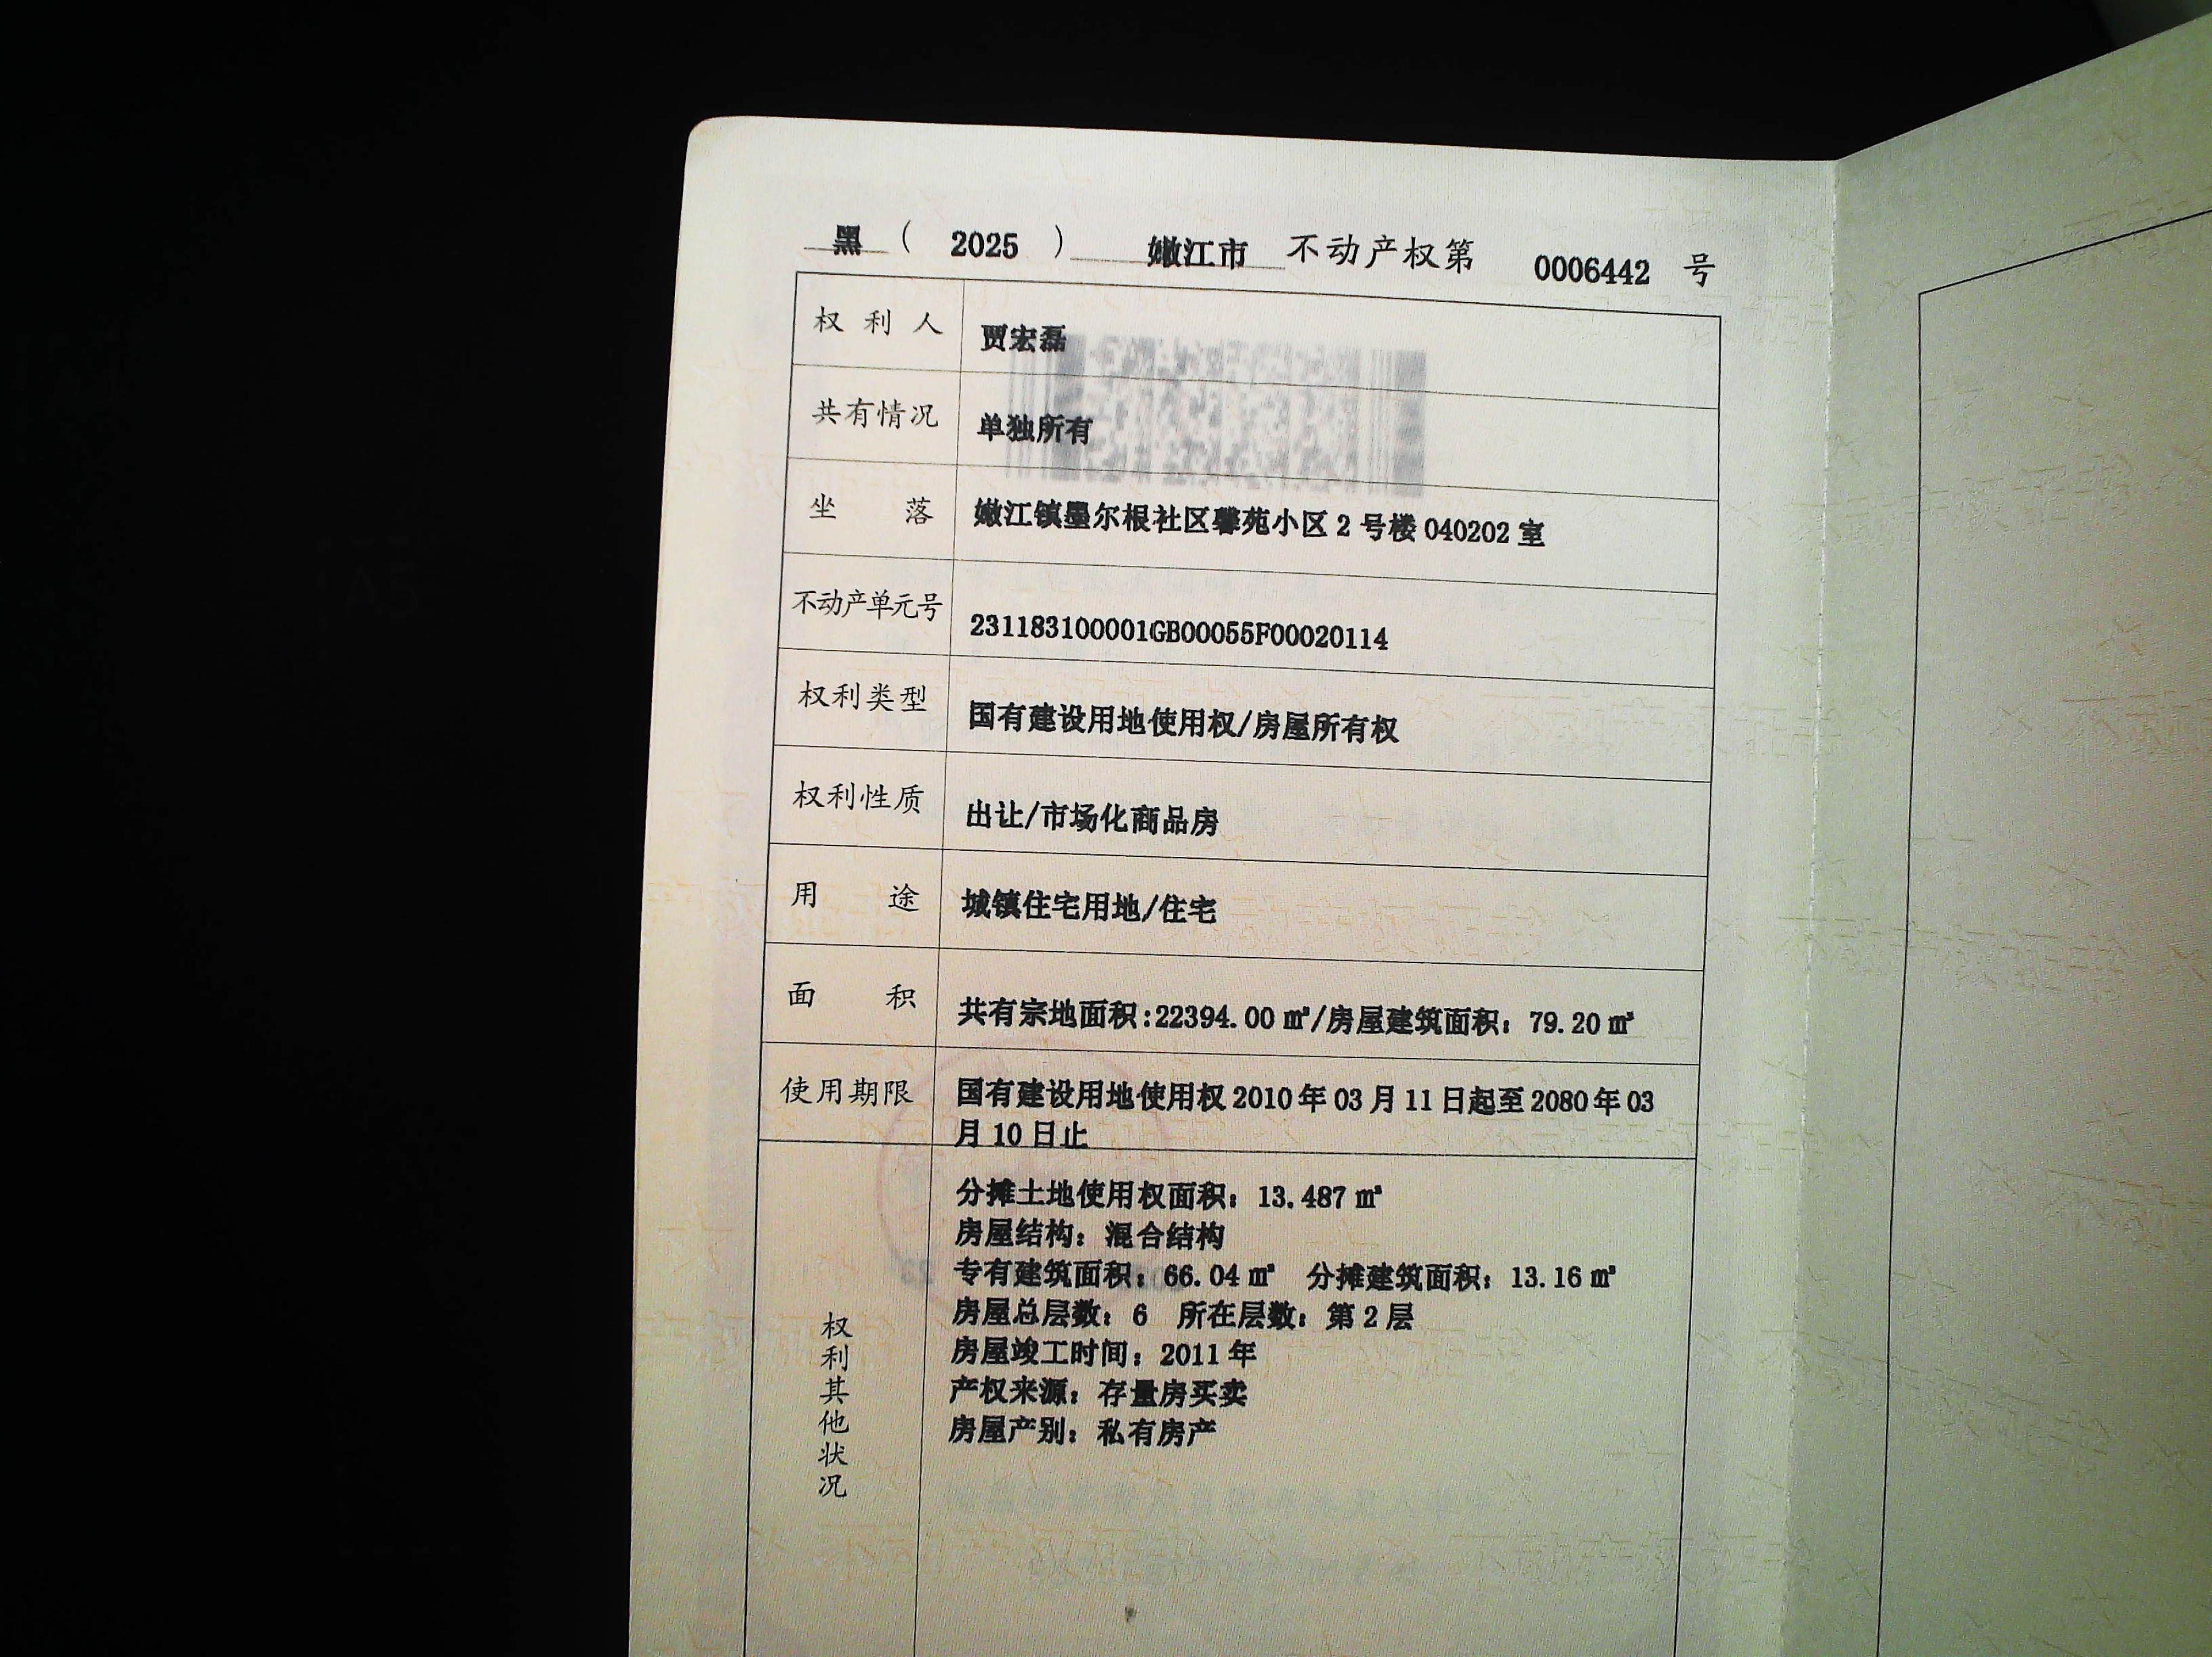 黑 ( 2025 ) 嫩江市 不动产权第 0006442 号
权利人 贾宏磊
共有情况 单独所有
坐落 嫩江镇墨尔根社区馨苑小区2号楼040202室
不动产单元号 231183100001GB00055F00020114
权利类型 国有建设用地使用权/房屋所有权
权利性质 出让/市场化商品房
用途 城镇住宅用地/住宅
面积 共有宗地面积:22394.00㎡/房屋建筑面积：79.20㎡
使用期限 国有建设用地使用权2010年03月11日起至2080年03
月10日止
权利其他状况
分摊土地使用权面积：13.487㎡
房屋结构：混合结构
专有建筑面积：66.04㎡ 分摊建筑面积：13.16㎡
房屋总层数：6 所在层数：第2层
房屋竣工时间：2011年
产权来源：存量房买卖
房屋产别：私有房产